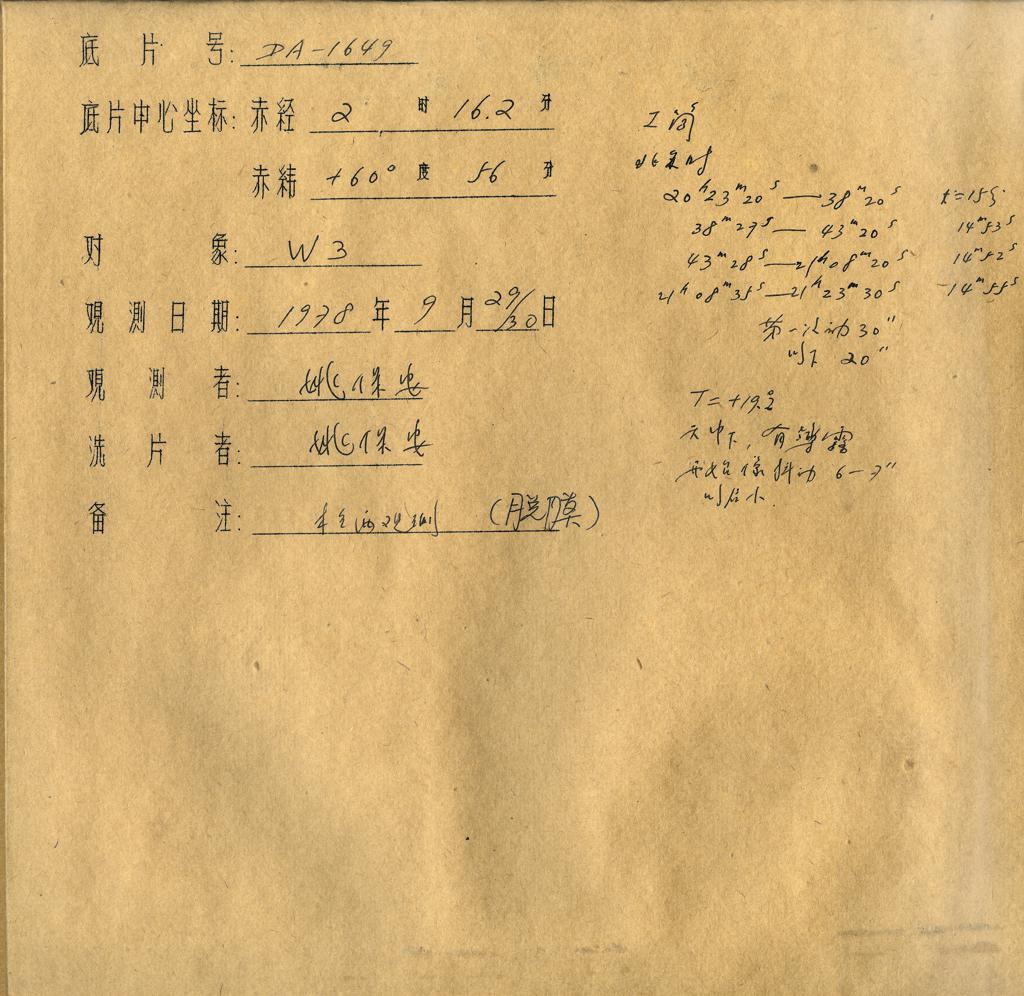 底片号: DA-1649
底片中心坐标: 赤经 2 时 16.2 分
赤纬 +60° 度 56 分
对象: W3
观测日期: 1978 年 9 月 29/30 日
观测者: 姚保安
洗片者: 姚保安
备注: 观测 (脱膜)
I 筒
北京时
20h23m20s — 38m20s t=15m
38m27s — 43m20s 14m53s
43m28s — 21h08m20s 14m52s
21h08m35s — 21h23m30s 14m55s
第一次动 30"
以下 20"
T=+19.2
天中下, 有薄雾
开始像抖动 6-7"
以后小.